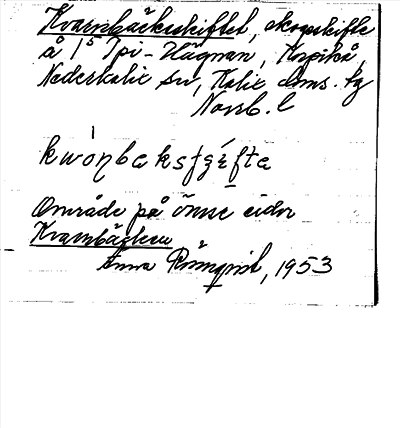 Kvarnbäcksskiftet, skogsskifte
å 1⁵ Ipi-Hägnan, Korpikå,
Nederkalix sn, Kalix doms. tg
Norrb. l
kwȯnbaksʃɛ́fta
Område på ömse sidor
Kvarnbäcken
Anna Rönnqvist, 1953